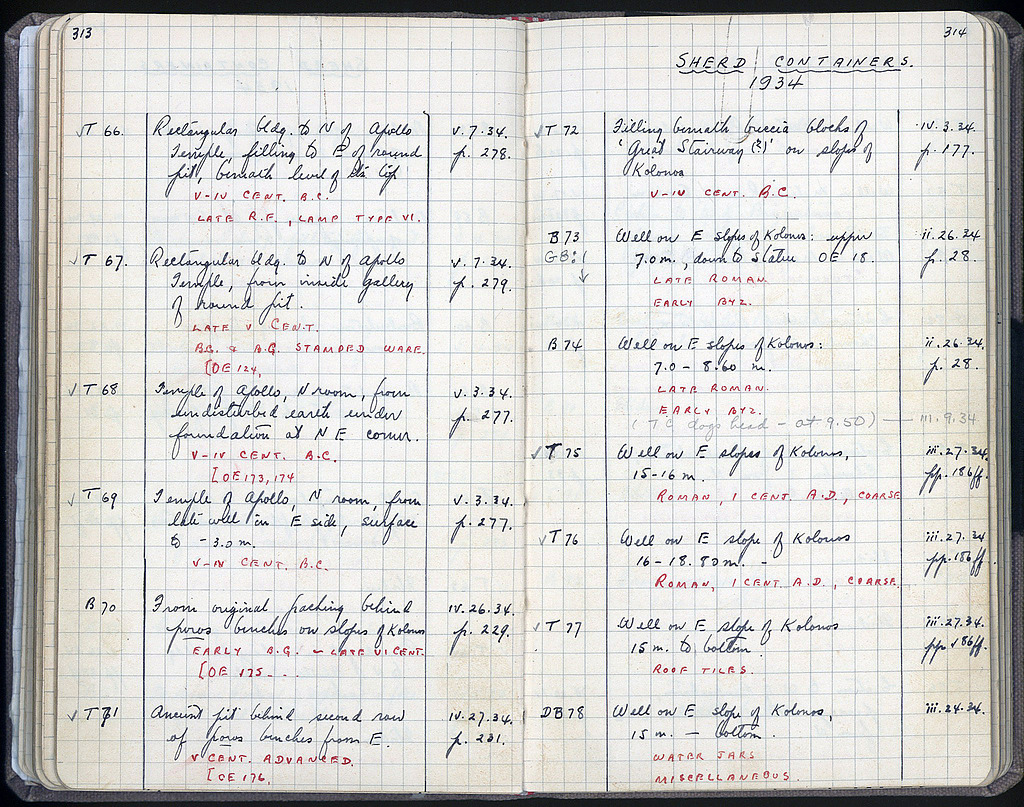 313
✓T 66. Rectangular bldg. to N of Apollo v.7.34.
Temple, filling to E of round p. 278.
pit, beneath level of its lip
V-IV CENT. B.C.
LATE R.F., LAMP TYPE VI.
✓T 67. Rectangular bldg. to N of Apollo v.7.34.
Temple, from inside gallery p. 279.
of round pit.
LATE V CENT.
B.G. & B.G. STAMPED WARE.
[OE 124,
✓T 68 Temple of Apollo, N room, from v.3.34.
undisturbed earth under p. 277.
foundation at N E corner.
V-IV CENT. B.C.
[OE 173, 174
✓T 69 Temple of Apollo, N room, from v.3.34.
late well in E side, surface p. 277.
to -3.0 m.
V-IV CENT. B.C.
B 70 From original packing behind iv.26.34.
poros benches on slopes of Kolonos p. 229.
EARLY B.G. - LATE VI CENT.
[OE 175 - - .
✓T 71 Ancient pit behind second row iv.27.34.
of poros benches from E. p. 231.
V CENT. ADVANCED.
[OE 176.
314
SHERD CONTAINERS.
1934
✓T 72 Filling beneath breccia blocks of iv.3.34.
'Great Stairway (?)' on slope of p. 177.
Kolonos
V-IV CENT. B.C.
B 73 Well on E slopes of Kolonos: upper ii.26.34
G8:1 7.0 m., down to statue OE 18. p. 28.
↓ LATE ROMAN.
EARLY BYZ.
B 74 Well on E slopes of Kolonos: ii.26.34.
7.0 - 8.60 m. p. 28.
LATE ROMAN.
EARLY BYZ.
(TC dogs head - at 9.50) — iii.9.34
✓T 75 Well on E slopes of Kolonos, iii.27.34
15-16 m. pp. 186ff.
ROMAN, 1 CENT. A.D., COARSE
✓T 76 Well on E slope of Kolonos iii.27.34
16-18.80 m. - pp. 186ff.
ROMAN, 1 CENT. A.D., COARSE.
✓T 77 Well on E slope of Kolonos iii.27.34.
15 m. to bottom. pp. 186ff.
ROOF TILES.
DB 78 Well on E slope of Kolonos, iii.24.34.
15 m. — bottom.
WATER JARS
MISCELLANEOUS.